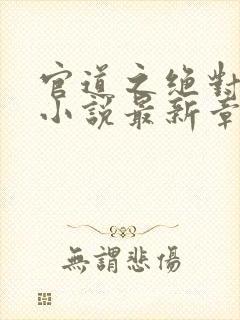 官道之絕對
小說最新章
無謂悲傷